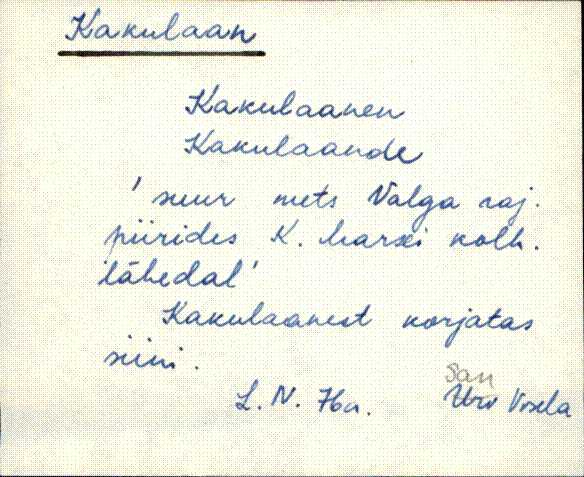 Kakulaan
Kakulaanen
Kakulaande
'suur mets Valga raj.
piirides K. Marxi kolh.
lähedal'
Kakulaanest korjatas
siini.
San
L. N. Urv Vosela